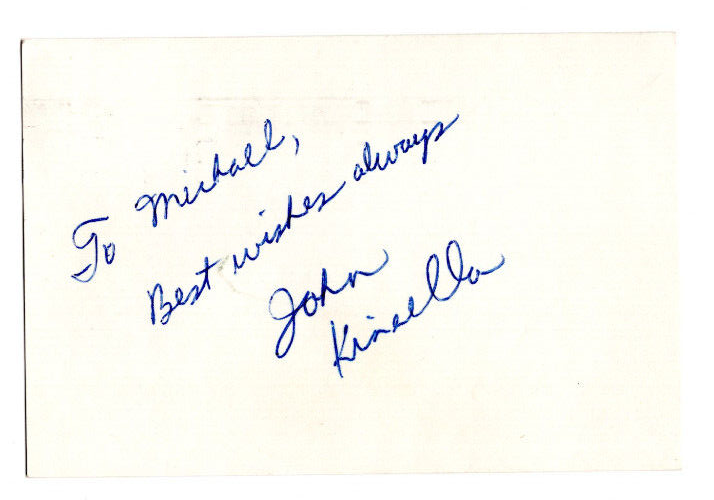 To Michael,
Best wishes always
John
Kinsella